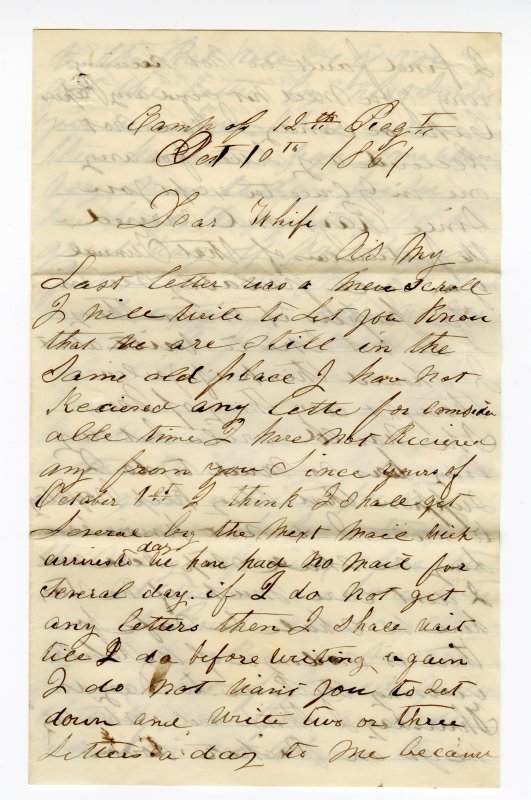 Camp of 12th Regt
Oct 10th 1861
Dear Whife
As My
Last letter was a mere scroll
I will write to Let you Know
that we are still in the
Same old place I have Not
Recieved any lette for consider
able time I have Not Recieved
any from you Since yours of
October 1st I think I shall get
Several by the Next Mail wich
arrives to day We have had No Mail for
several day. if I do Not get
any letters then I shall wait
till I do before writing again
I do Not want you to Set
down and write two or three
Letters a day to Me because